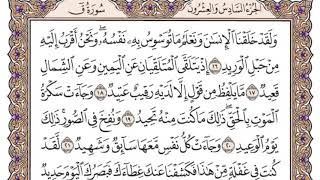 الجزء السادس والعشرون سورة ق
وَلَقَدْ خَلَقْنَا ٱلْإِنسَٰنَ وَنَعْلَمُ مَا تُوَسْوِسُ بِهِۦ نَفْسُهُۥ ۖ وَنَحْنُ أَقْرَبُ إِلَيْهِ
مِنْ حَبْلِ ٱلْوَرِيدِ ١٦ إِذْ يَتَلَقَّى ٱلْمُتَلَقِّيَانِ عَنِ ٱلْيَمِينِ وَعَنِ ٱلشِّمَالِ
قَعِيدٌ ١٧ مَّا يَلْفِظُ مِن قَوْلٍ إِلَّا لَدَيْهِ رَقِيبٌ عَتِيدٌ ١٨ وَجَآءَتْ سَكْرَةُ
ٱلْمَوْتِ بِٱلْحَقِّ ۖ ذَٰلِكَ مَا كُنتَ مِنْهُ تَحِيدُ ١٩ وَنُفِخَ فِى ٱلصُّورِ ۚ ذَٰلِكَ
يَوْمُ ٱلْوَعِيدِ ٢٠ وَجَآءَتْ كُلُّ نَفْسٍ مَّعَهَا سَآئِقٌ وَشَهِيدٌ ٢١ لَّقَدْ
كُنتَ فِى غَفْلَةٍ مِّنْ هَٰذَا فَكَشَفْنَا عَنكَ غِطَآءَكَ فَبَصَرُكَ ٱلْيَوْمَ حَدِيدٌ